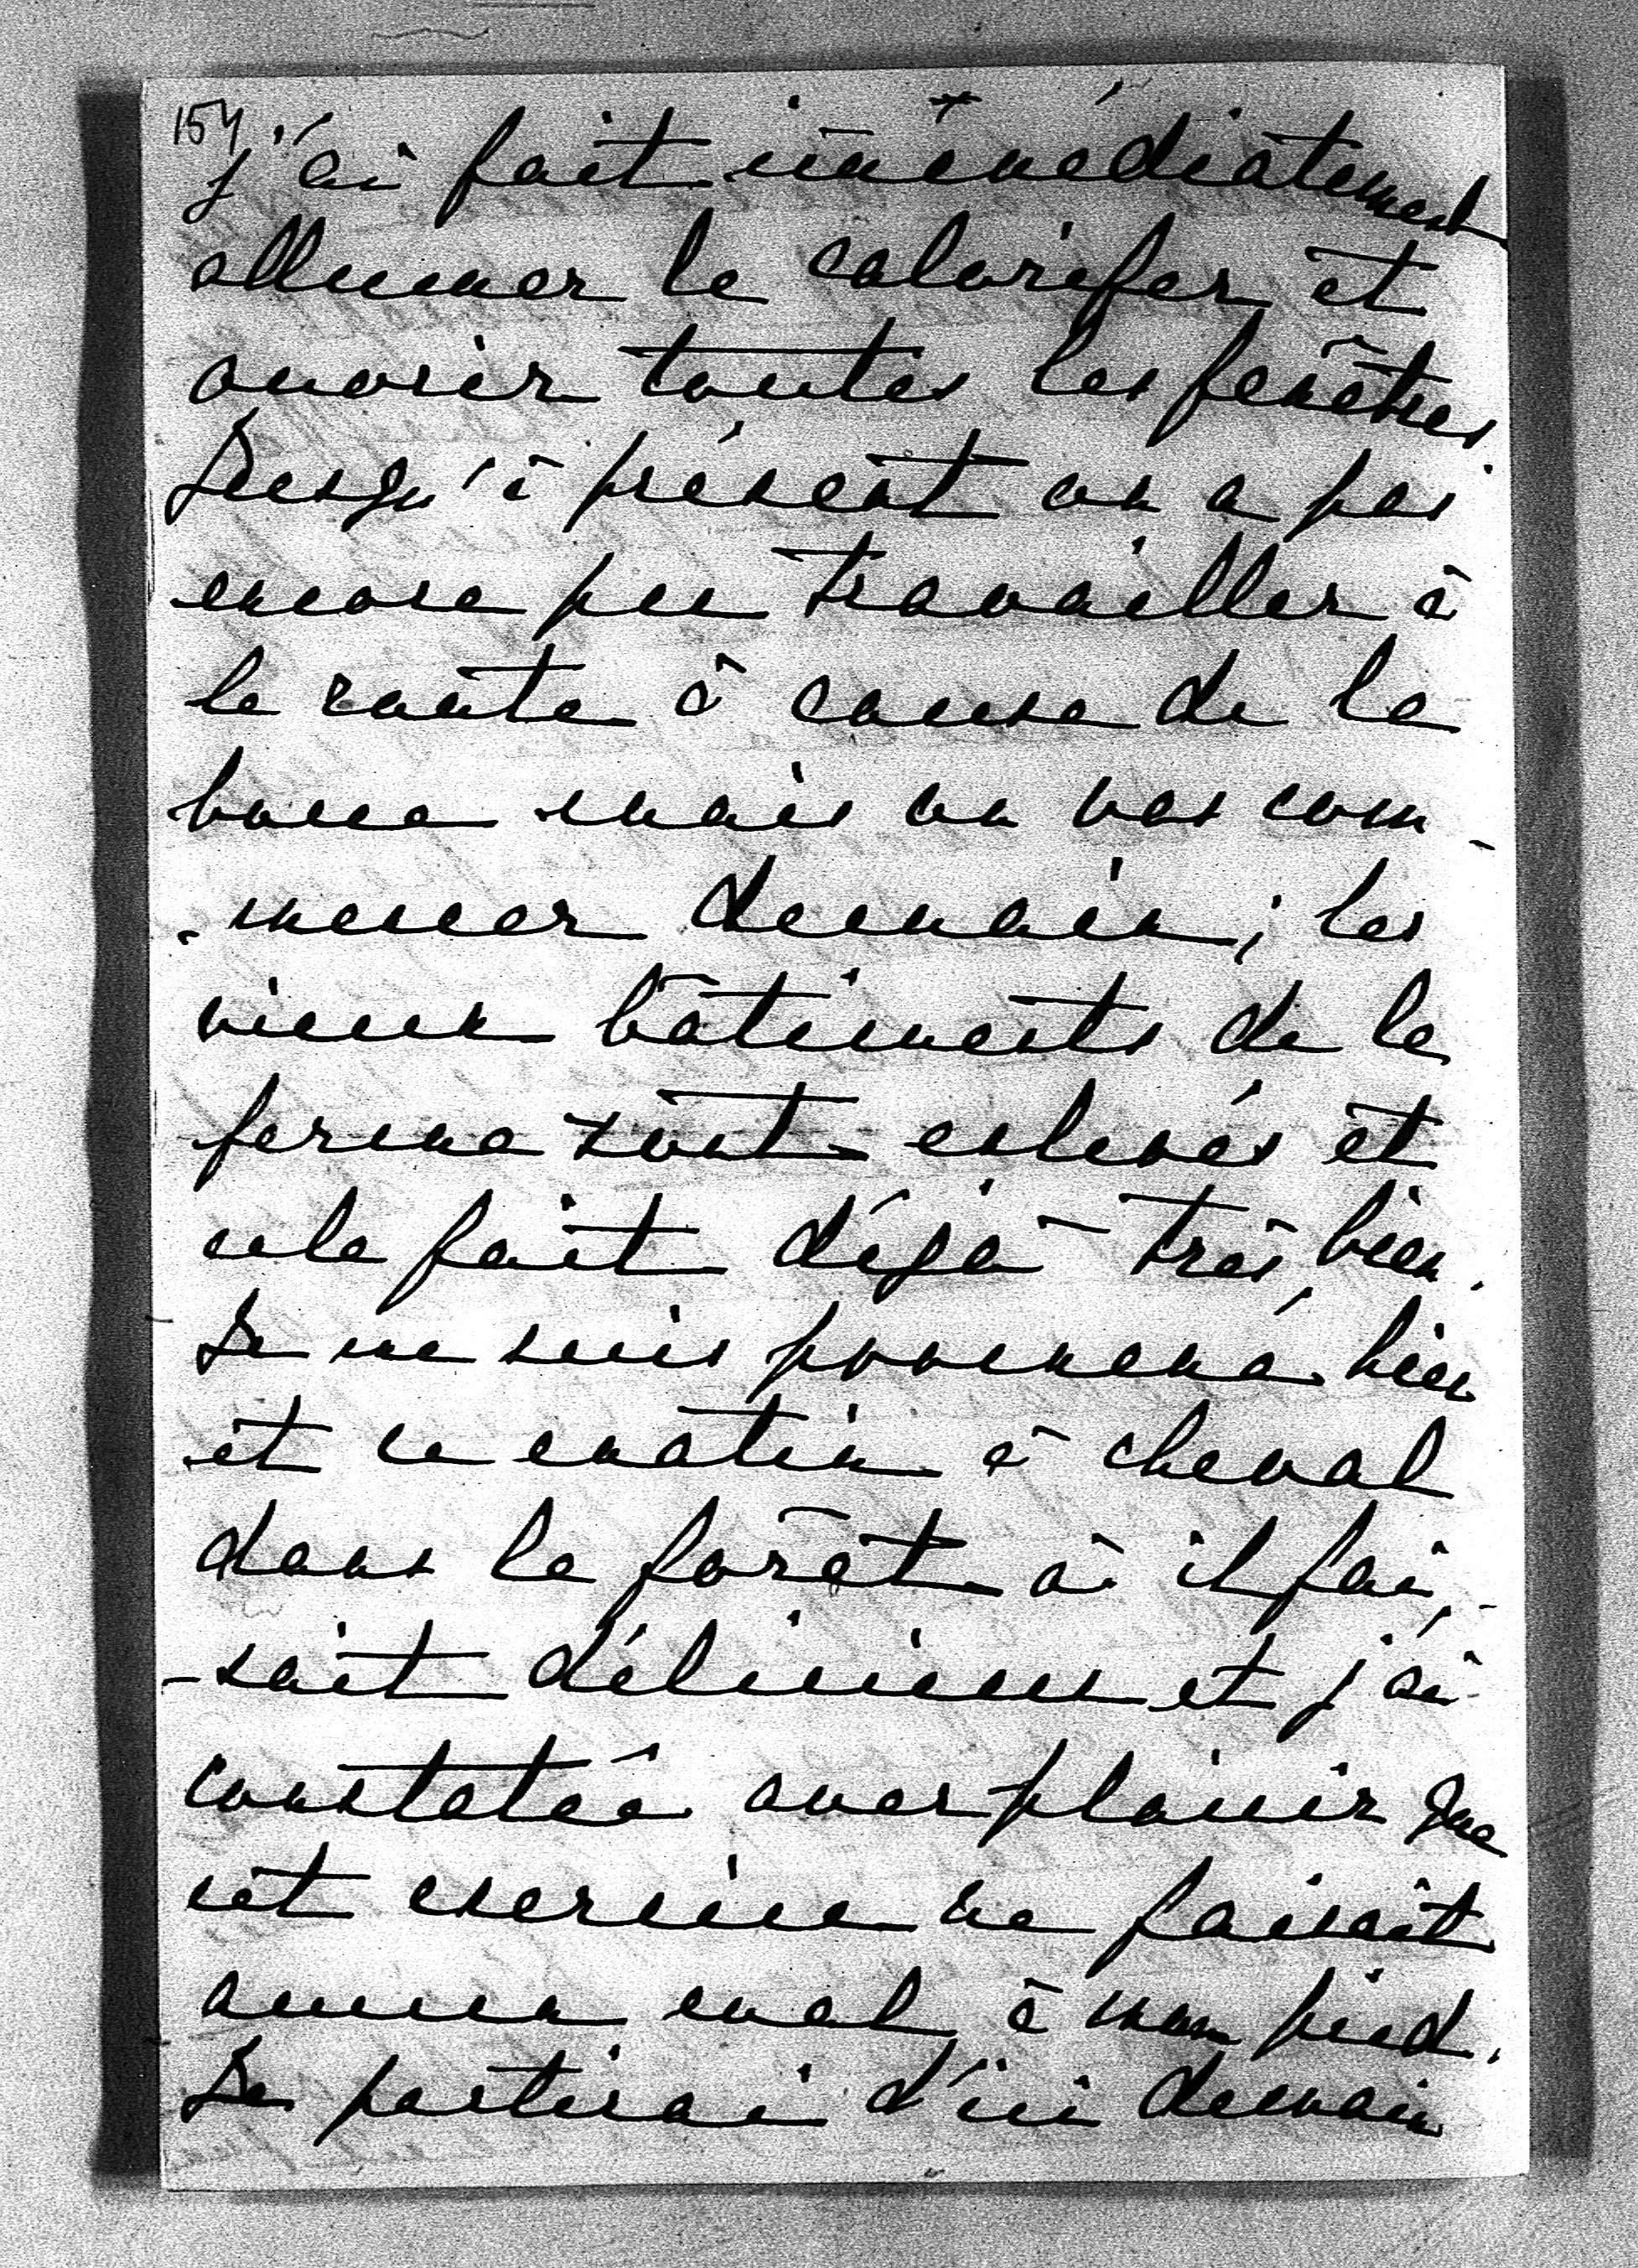 154
j'ai fait immédiatement
allumer le calorifer et
ouvrir toutes les fenêtres.
Jusqu'à présent on a pas
encore pu travailler à
la route à cause de la
boue mais on vas com-
-mencer demain; les
vieux bâtiments de la
ferme sont enlevés et
cela fait déjà très bien.
Je me suis promené hier
et ce matin à cheval
dans la forêt où il fai-
-sait délicieux et j'ai
constatée avec plaisir que
cet exercice ne faisait
aucun mal à mon pied.
Je partirai d'ici demain